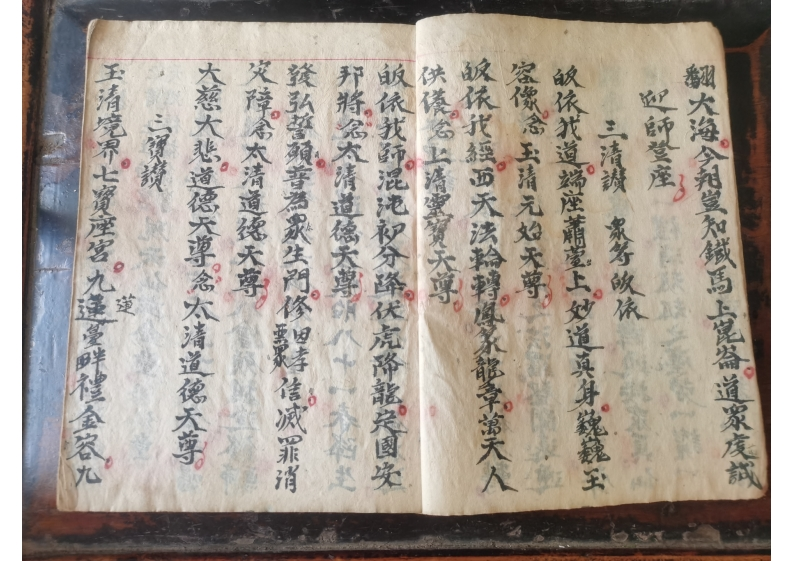 翻大海今朝豈知鐵馬上崑崙道眾虔誠
迎師登座
三清讚　眾等皈依
皈依我道端座蕭臺上妙道真身巍巍玉
容像念玉清元始天尊
皈依我經西天法輪轉鳳篆龍章萬天人
供養念上清靈寶天尊
皈依我師混沌初分降伏虎降龍定國安
邦將念太清道德天尊
發弘誓願普為眾生門修因孝信滅罪消
眾
災障念太清道德天尊
大慈大悲道德天尊念太清道德天尊
三寶讚
玉清境界七寶座宮九蓮臺畔禮金容九
蓮